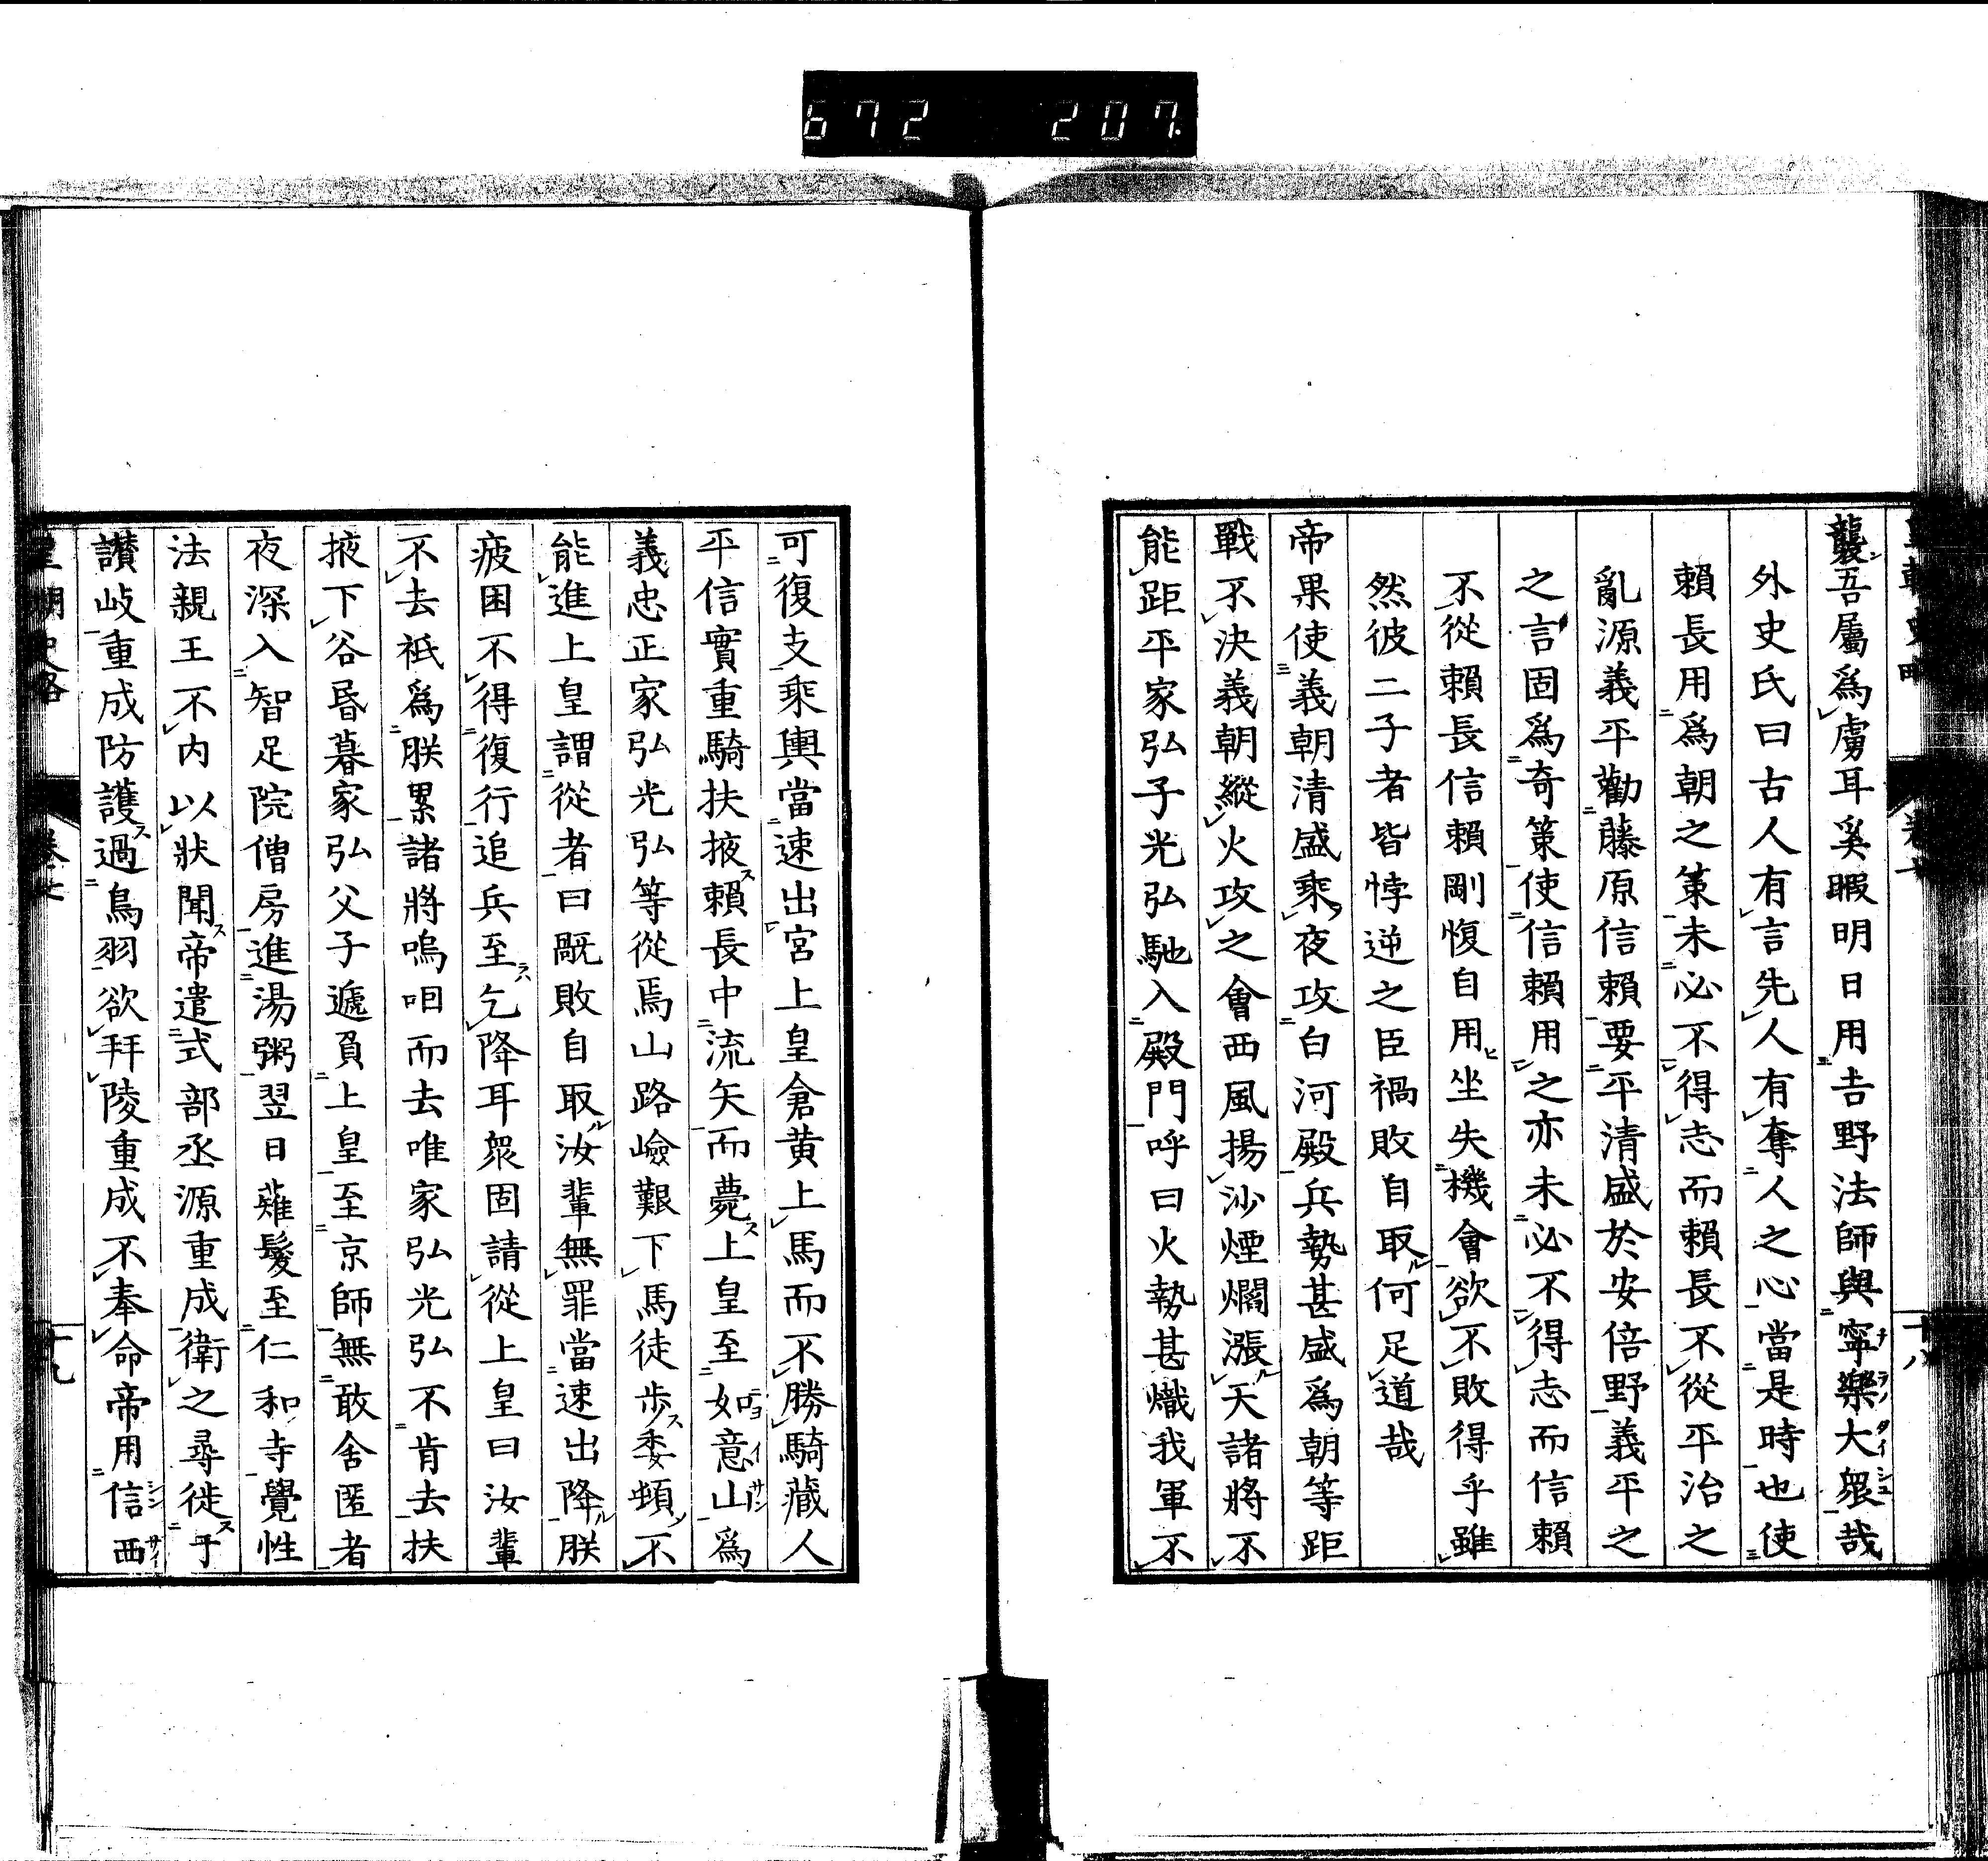 672 207.
襲吾屬爲虜耳奚暇明日用吉野法師與寧樂大衆哉
外史氏曰古人有言先人有奪人之心當是時也使
賴長用爲朝之策未必不得志而賴長不從平治之
亂源義平勸藤原信賴要平清盛於安倍野義平之
之言固爲奇策使信賴用之亦未必不得志而信賴
不從賴長信賴剛愎自用坐失機會欲不敗得乎雖
然彼二子者皆悖逆之臣禍敗自取何足道哉
帝果使義朝清盛乘夜攻白河殿兵勢甚盛爲朝等距
戰不決義朝縱火攻之會西風揚沙煙爓漲天諸將不
能距平家弘子光弘馳入殿門呼曰火勢甚熾我軍不
可復支乘輿當速出宮上皇倉黃上馬而不勝騎藏人
平信實重騎扶掖賴長中流矢而薨上皇至如意山爲
義忠正家弘光弘等從焉山路嶮艱下馬徒步委頓不
能進上皇謂從者曰敗自取汝輩無罪當速出降朕
疲困不得復行追兵至乞降耳衆固請從上皇曰汝輩
不去祇爲朕累諸將嗚咽而去唯家弘光弘不肯去扶
掖下谷昏暮家弘父子遞負上皇至京師無敢舍匿者
夜深入智足院僧房進湯粥翌日薙髮至仁和寺覺性
法親王不内以狀聞帝遣式部丞源重成衛之尋徙于
讚岐重成防護過鳥羽欲拜陵重成不奉命帝用信西